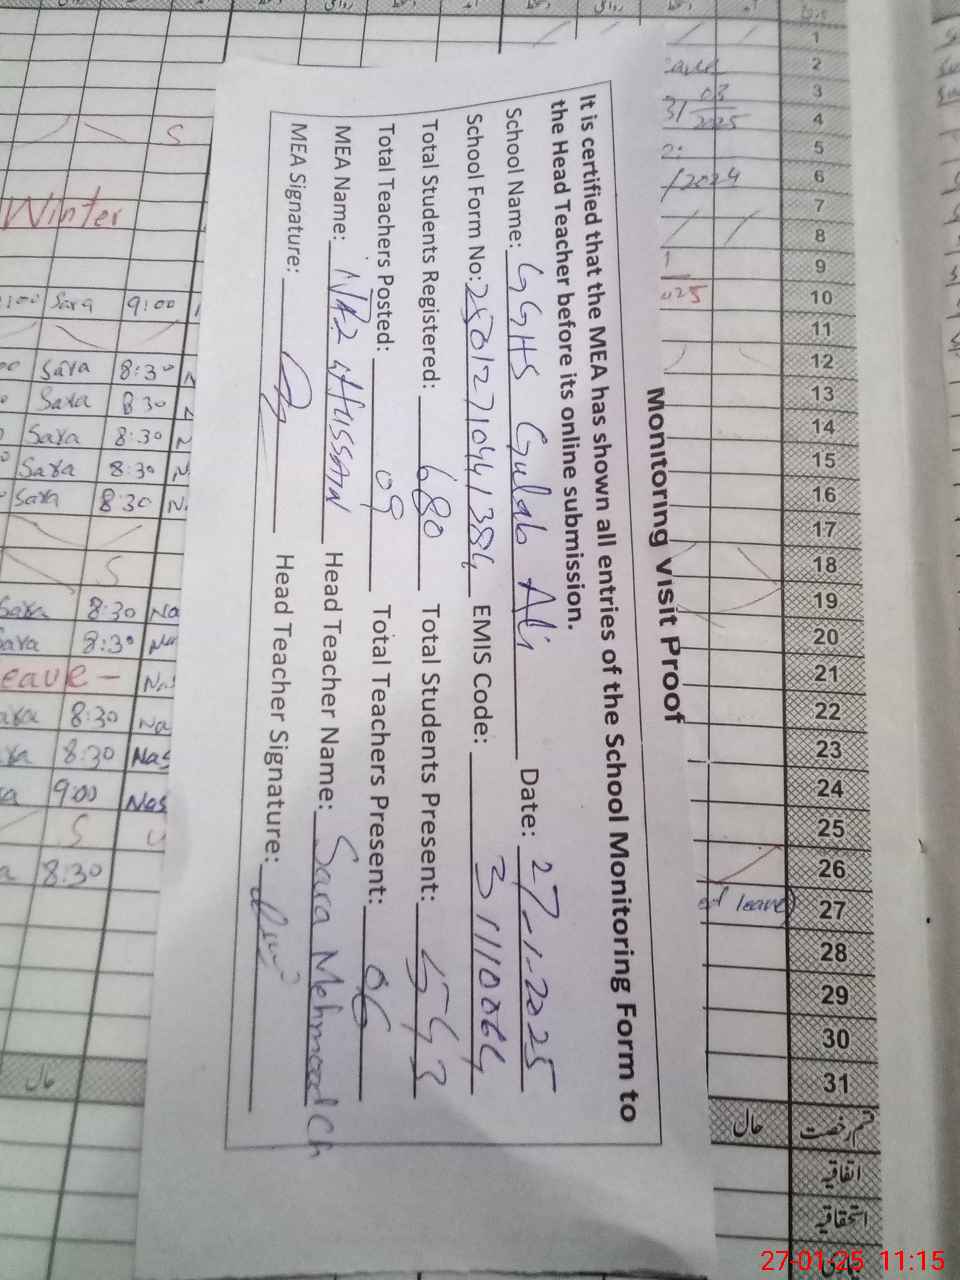 Monitoring Visit Proof
It is certified that the MEA has shown all entries of the School Monitoring Form to
the Head Teacher before its online submission.
School Name: GGHS Gulab Ali Date: 27-1-2025
School Form No: 25012710441384 EMIS Code: 31110064
Total Students Registered: 680 Total Students Present: 543
Total Teachers Posted: 09 Total Teachers Present: 06
MEA Name: Head Teacher Name: Sara Mehmood Ch
MEA Signature: Head Teacher Signature:
1
2
03
3
31/2025
4
5
6
/2024
7
8
9
10
11
12
13
14
15
16
17
18
19
20
21
22
23
24
25
26
27
leave)
28
29
30
31
حال
قسم رخصت
اتفاقیہ
استحقاقیہ
حال
S
Winter
:00 Sara 9:00
Sara 8:30
Sara 8 30
Sara 8:30 N
Sara 8:30 N
Sara 8:30 N
S
Sara 8:30 Na
Sara 8:30
eave -
8:30 Na
8:30 Nas
9:00 Nas
S
8:30
27-01-25 11:15